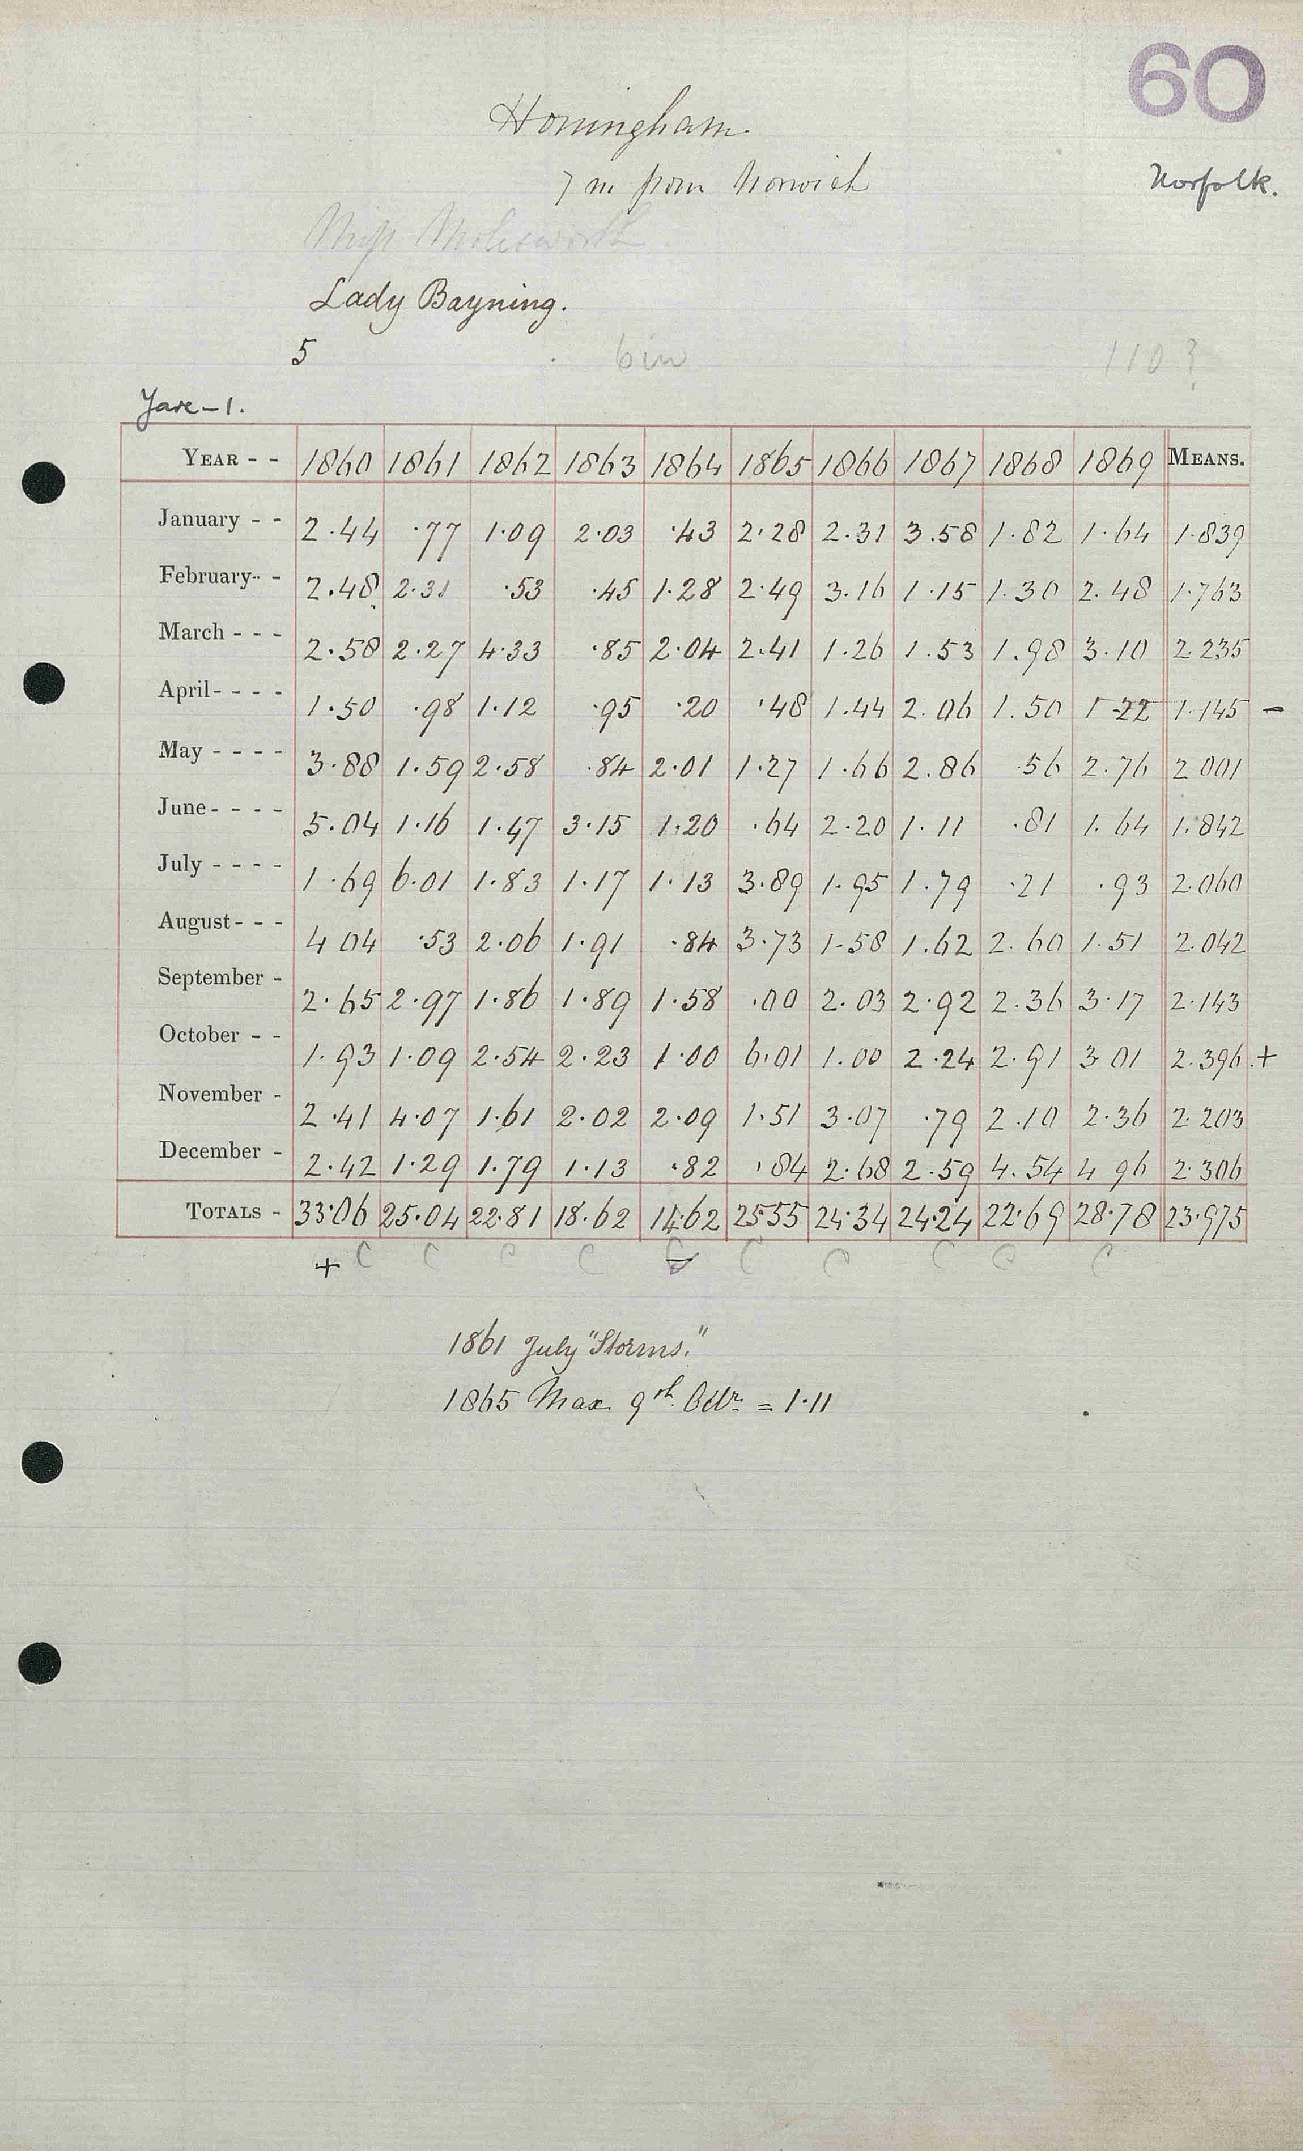 60
Honingham.
7 m from Norwich
Norfolk.
Miss Molesworth
Lady Bayning.
5 6 in 110?
Yare - 1.
YEAR - - 1860 1861 1862 1863 1864 1865 1866 1867 1868 1869 MEANS.
January - - 2.44 .77 1.09 2.03 .43 2.28 2.31 3.58 1.82 1.64 1.839
February - - 2.48 2.31 .53 .45 1.28 2.49 3.16 1.15 1.30 2.48 1.763
March - - - 2.58 2.27 4.33 .85 2.04 2.41 1.26 1.53 1.98 3.10 2.235
April - - - - 1.50 .98 1.12 .95 .20 .48 1.44 2.06 1.50 1.22 1.145 -
May - - - - 3.88 1.59 2.58 .84 2.01 1.27 1.66 2.86 .56 2.76 2.001
June - - - - 5.04 1.16 1.47 3.15 1.20 .64 2.20 1.11 .81 1.64 1.842
July - - - - 1.69 6.01 1.83 1.17 1.13 3.89 1.95 1.79 .21 .93 2.060
August - - - 4 04 .53 2.06 1.91 .84 3.73 1.58 1.62 2.60 1.51 2.042
September - 2.65 2.97 1.86 1.89 1.58 .00 2.03 2.92 2.36 3.17 2.143
October - - 1.93 1.09 2.54 2.23 1.00 6.01 1.00 2.24 2.91 3 01 2.396 +
November - 2.41 4.07 1.61 2.02 2.09 1.51 3.07 .79 2.10 2.36 2.203
December - 2.42 1.29 1.79 1.13 .82 .84 2.68 2.59 4.54 4 96 2.306
TOTALS - 33.06 25.04 22.81 18.62 14.62 25.55 24.34 24.24 22.69 28.78 23.975
+ C C C C C - C C C C C
1861 July "Storms."
1865 Max. 9th Octr. = 1.11